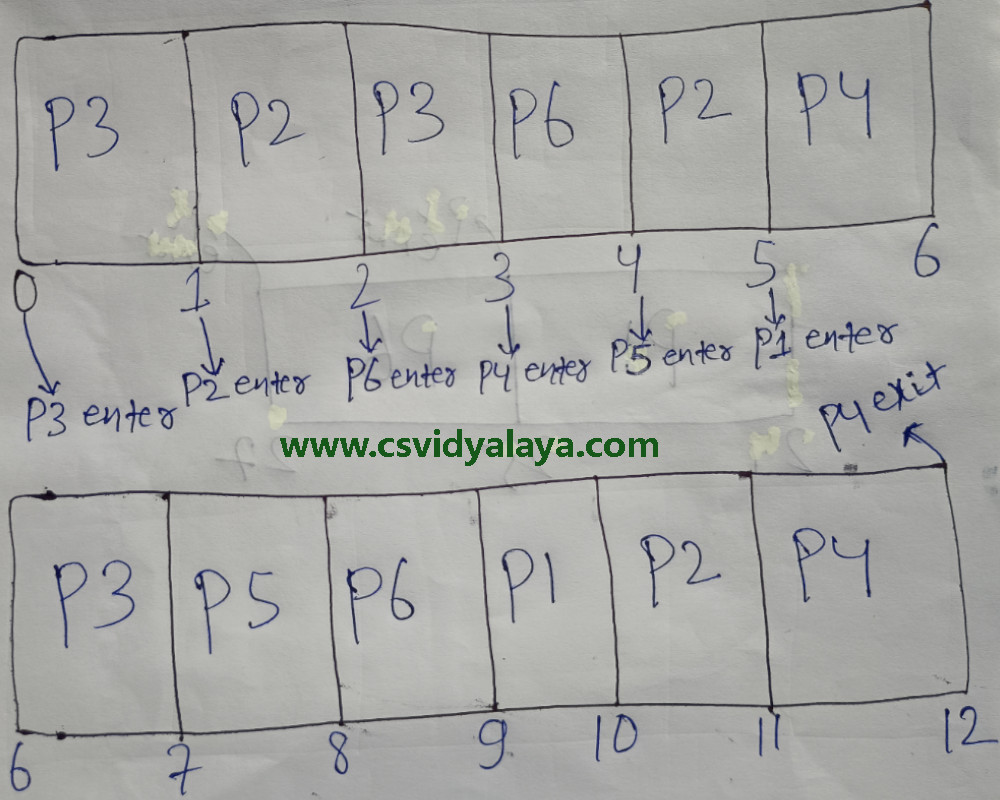 P3 P2 P3 P6 P2 P4
0 1 2 3 4 5 6
P3 enter P2 enter P6 enter P4 enter P5 enter P1 enter
P4 exit
www.csvidyalaya.com
P3 P5 P6 P1 P2 P4
6 7 8 9 10 11 12